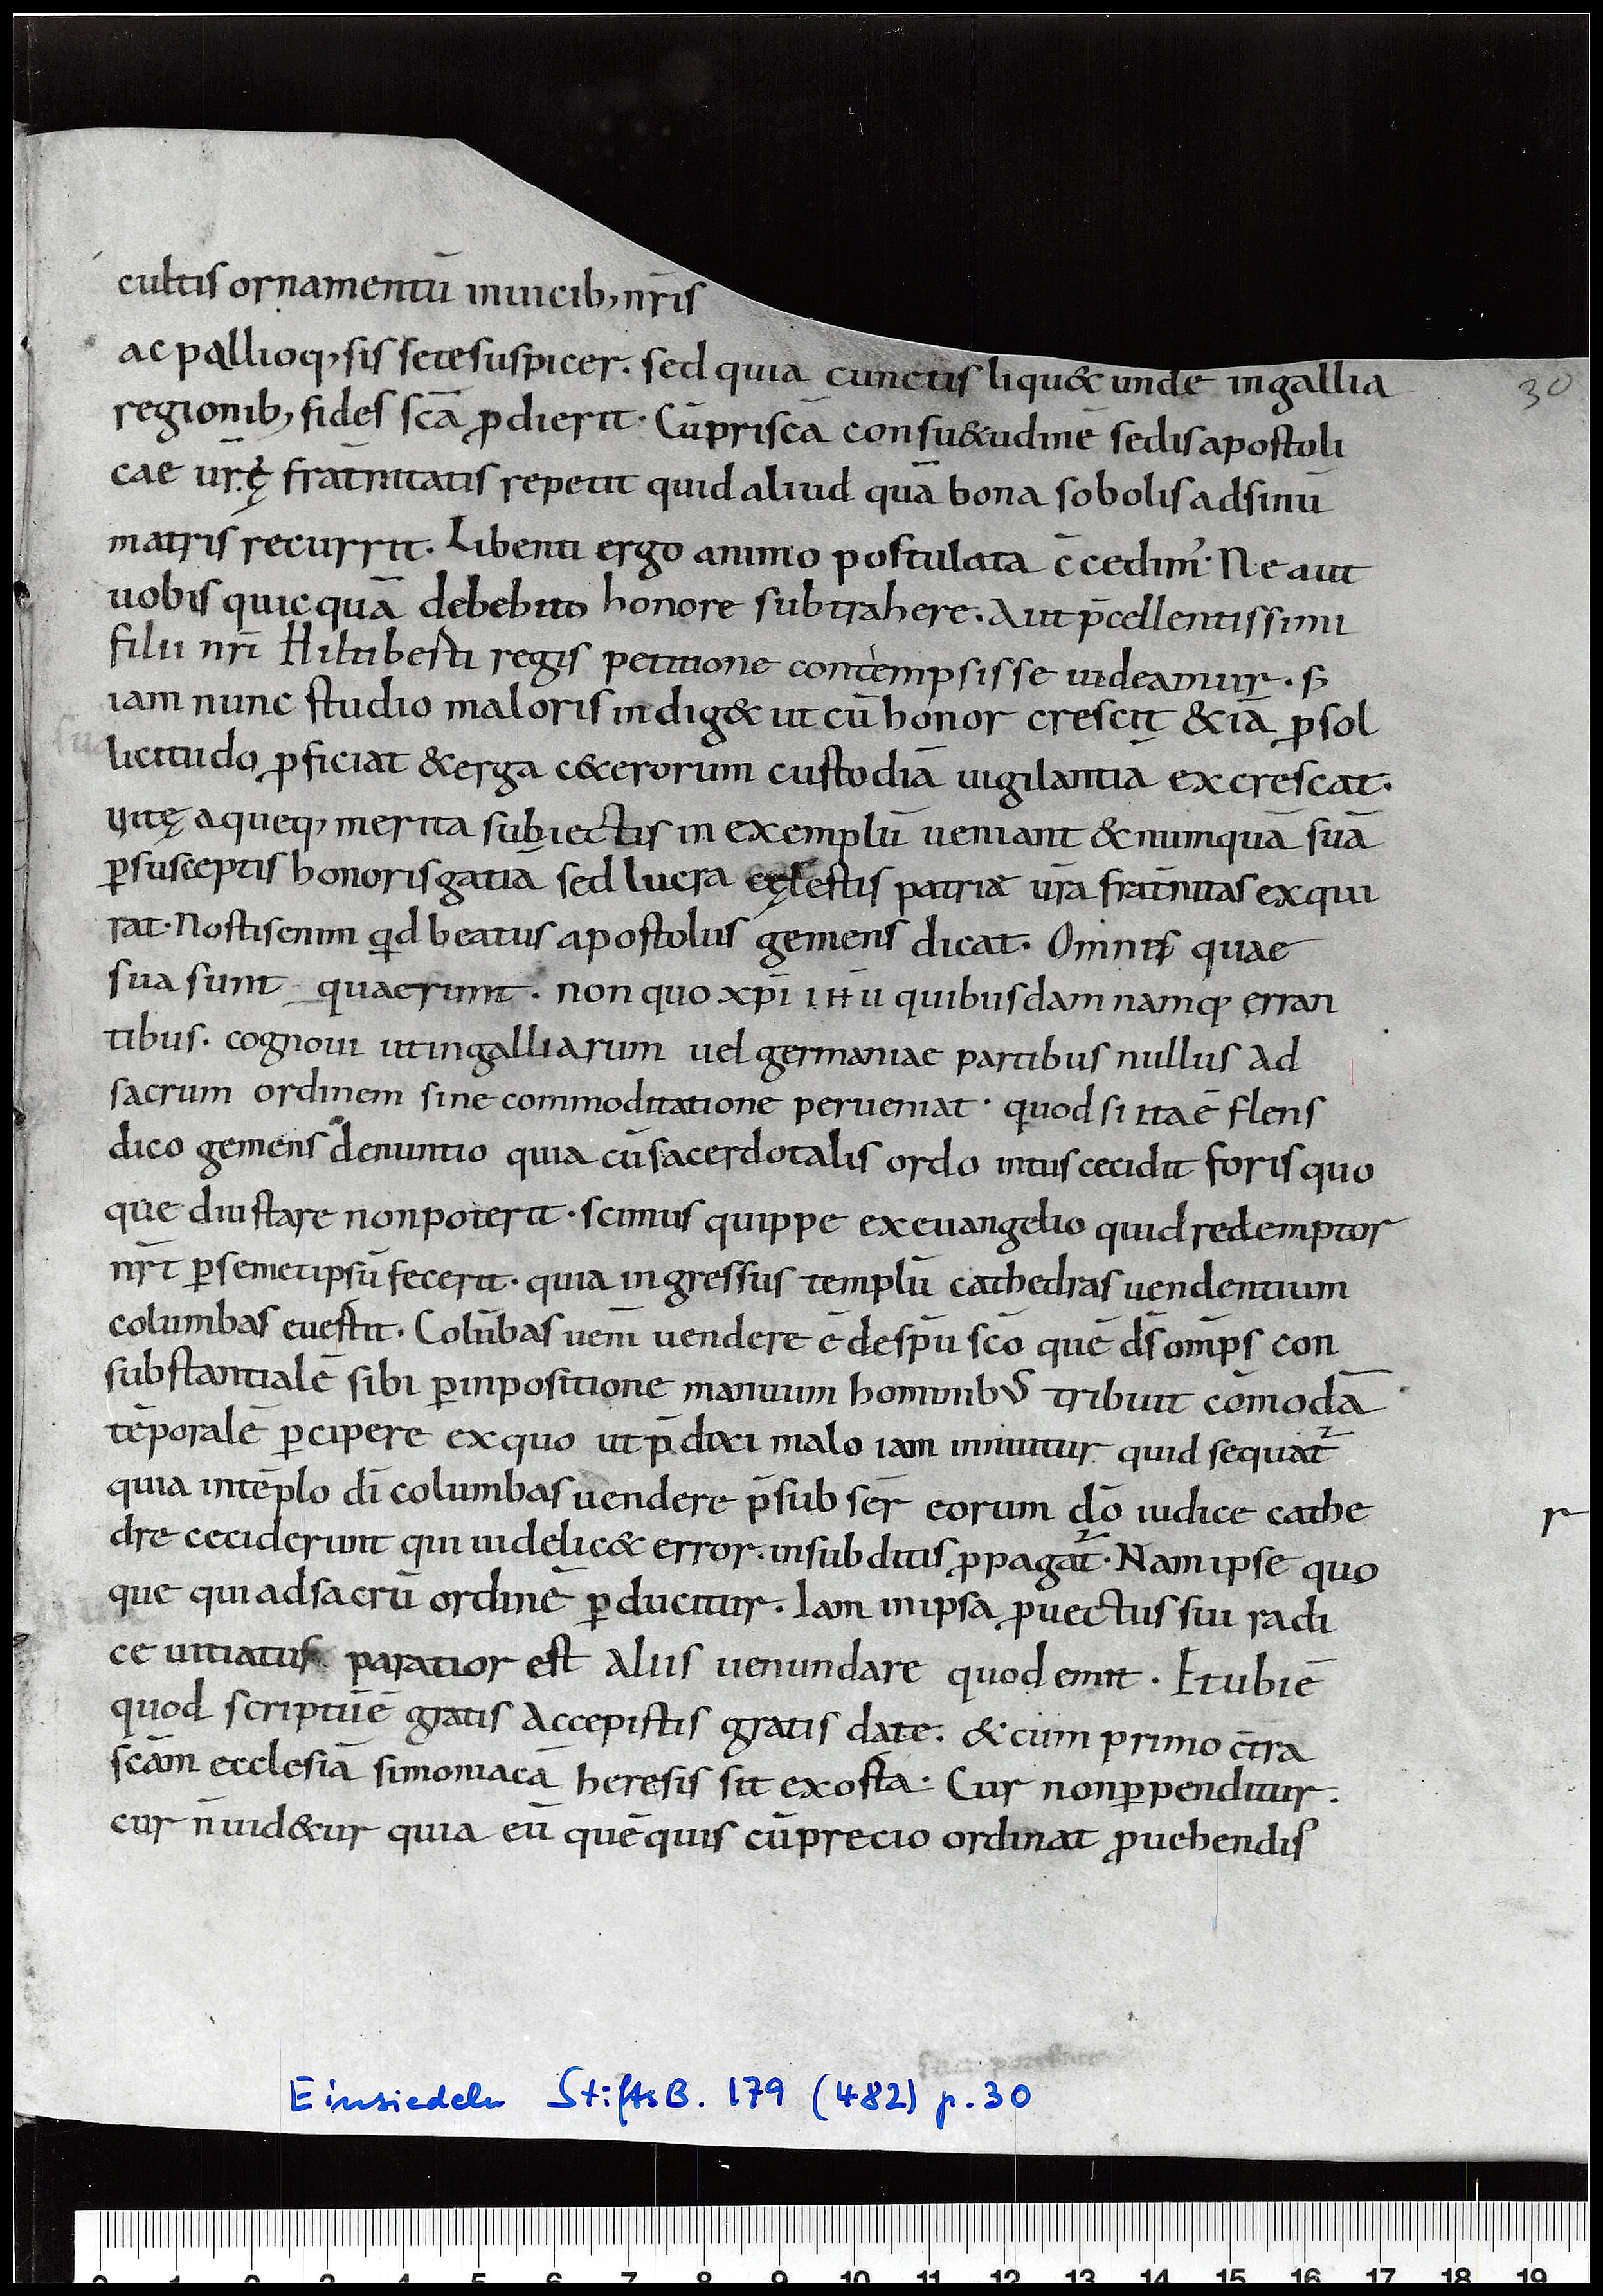 cultis ornamentū inuicib; nr̄is
ac pallioq; sis setesuspicer. sed quia cunctis liqu& unde ingallia
30
regionib; fides sc̄a ꝓdierit. Cūpriscā consu&udinē sedisapostoli
cae ur̄ę frat̄nitatis repetit quid aliud quā bona sobolis adsinū
matris recurrit. Libenti ergo animo postulata c̄cedim'. Ne aut
uobis quicquā debebito honore subtrahere. Aut p̄cellentissimi
filii nr̄i Hiltibesti regis petitione contempsisse uideamur. s;
iam nunc studio maioris indig& ut cū honor crescit &iā ꝓ sol
licitudo ꝓficiat & erga c&erorum custodiā uigilantia excrescat.
uitę aqueq; merita subiectis in exemplū ueniant & numquā suā
ꝑsusceptis honoris gatiā sed lucra cęlestis patriæ ur̄a frat̄nitas exqui
rat. Nostis enim qd̄ beatus apostolus gemens dicat. Omnis quae
sua sunt quaerunt. non quo xp̄i ihū quibusdam namq; erran
tibus. cognoui utingalliarum uel germaniae partibus nullus ad
sacrum ordinem sine commoditatione perueniat. quod si ita ē flens
dico gemens denuntio quia cūsacerdotalis ordo intus cecidit foris quo
que diu stare nonpoterit. scimus quippe exeuangelio quid redemptor
nr̄t ꝑsemetipsū fecerit. quia ingressus templū cathedras uendentium
columbas euestit. Colūbas uem̄ uendere ē despū sc̄o quē dsomp̄s con
substantialē sibi ꝑinpositione manuum hominibus tribuit cōmodā
tēporalē ꝑcipere exquo ut p̄dixi malo iam innuitur quid sequat̄
quia intēplo dī columbas uendere p̄sub ser̄ eorum dō iudice cathe
r
dre ceciderunt qui uidelic& error. insubditis ꝓpagat̄. Nam ipse quo
que qui adsacrū ordinē ꝑducitur. Iam inipsa ꝓuectus sui radi
ce uitiatus paratior est aliis uenundare quod emit. Et ubi ē
quod scriptūē gratis accepistis gratis date. & cum primo c̄tra
sc̄am ecclesiā simoniacā heresis sit exosta. Cur nonꝑpenditur.
cur n̄ uid&ur quia eū quēquis cūprecio ordinat ꝓuehendis
Einsiedeln StiftsB. 179 (482) p. 30
0 1 2 3 4 5 6 7 8 9 10 11 12 13 14 15 16 17 18 19